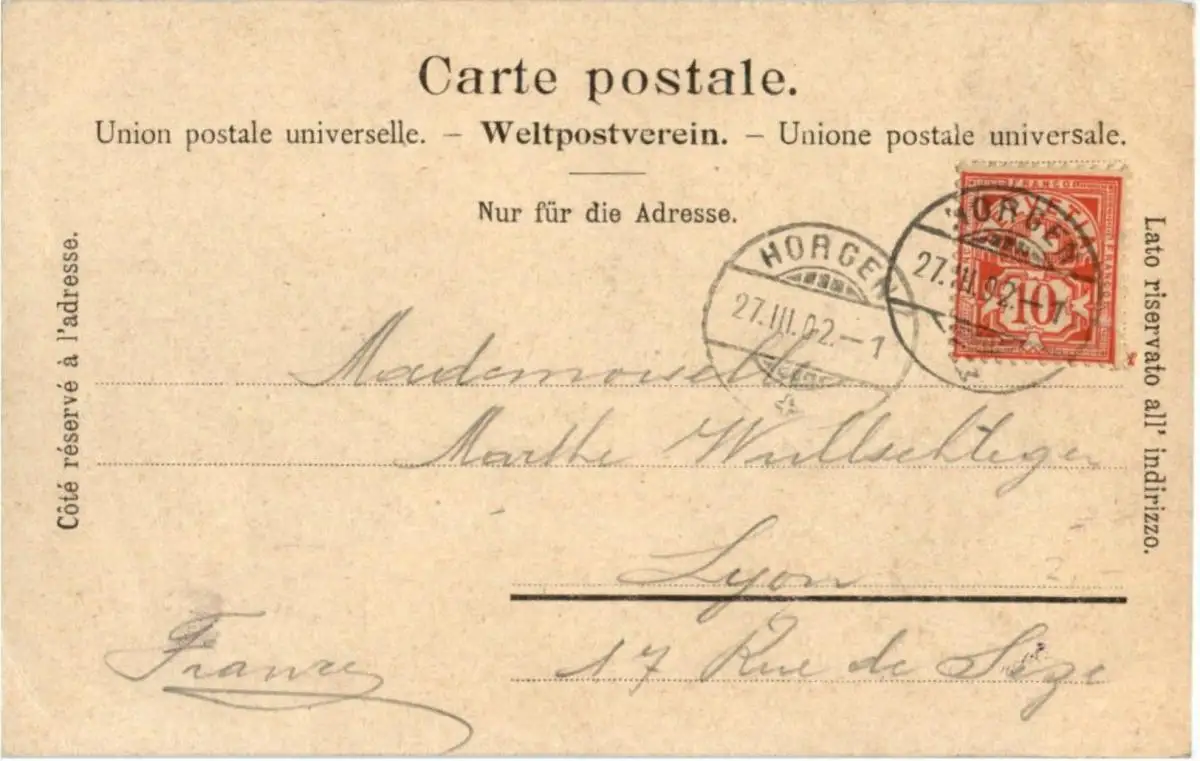 Carte postale.
Union postale universelle. – Weltpostverein. – Unione postale universale.
Nur für die Adresse.
Côté réservé à l'adresse.
Lato riservato all' indirizzo.
FRANCO
10
HORGEN
27.III.02.–1
HORGEN
27.III.02.–1
Mademoiselle
Marthe Wullschleger
Lyon
17 Rue de Sèze
France